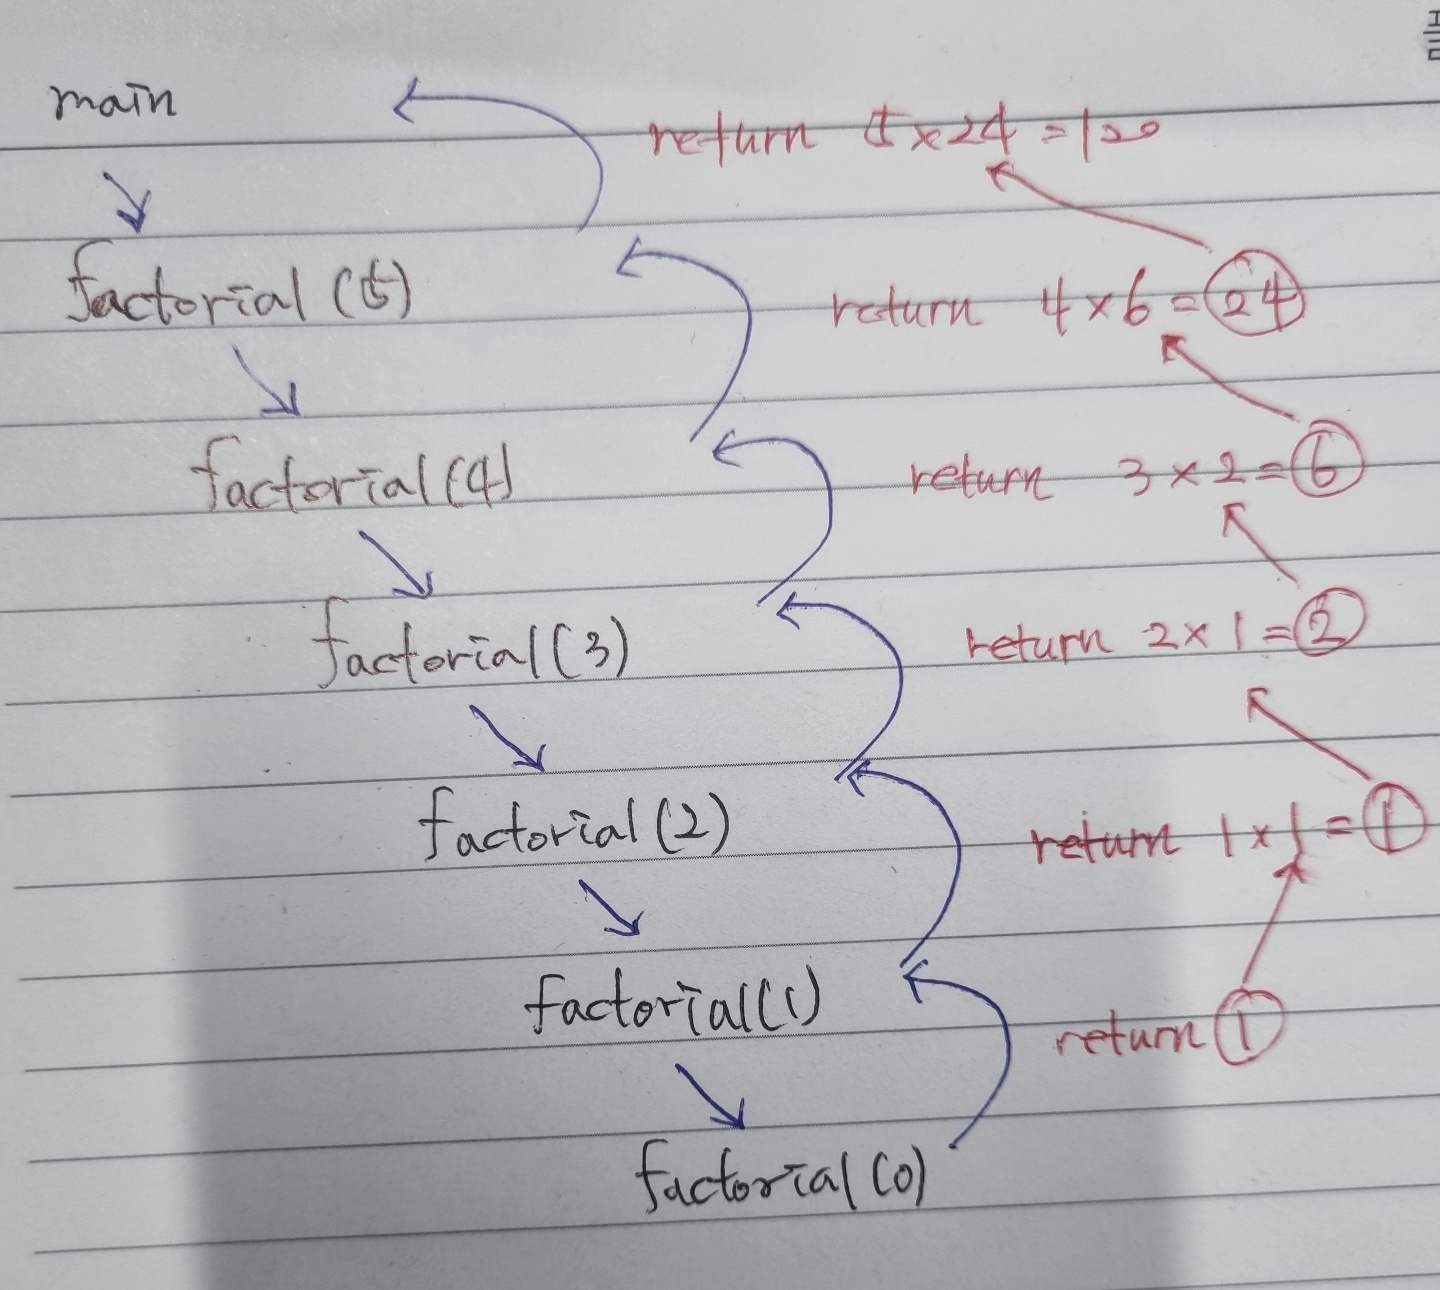 main
return 5×24=120
factorial(5)
return 4×6=24
factorial(4)
return 3×2=6
factorial(3)
return 2×1=2
factorial(2)
return 1×1=1
factorial(1)
return 1
factorial(0)